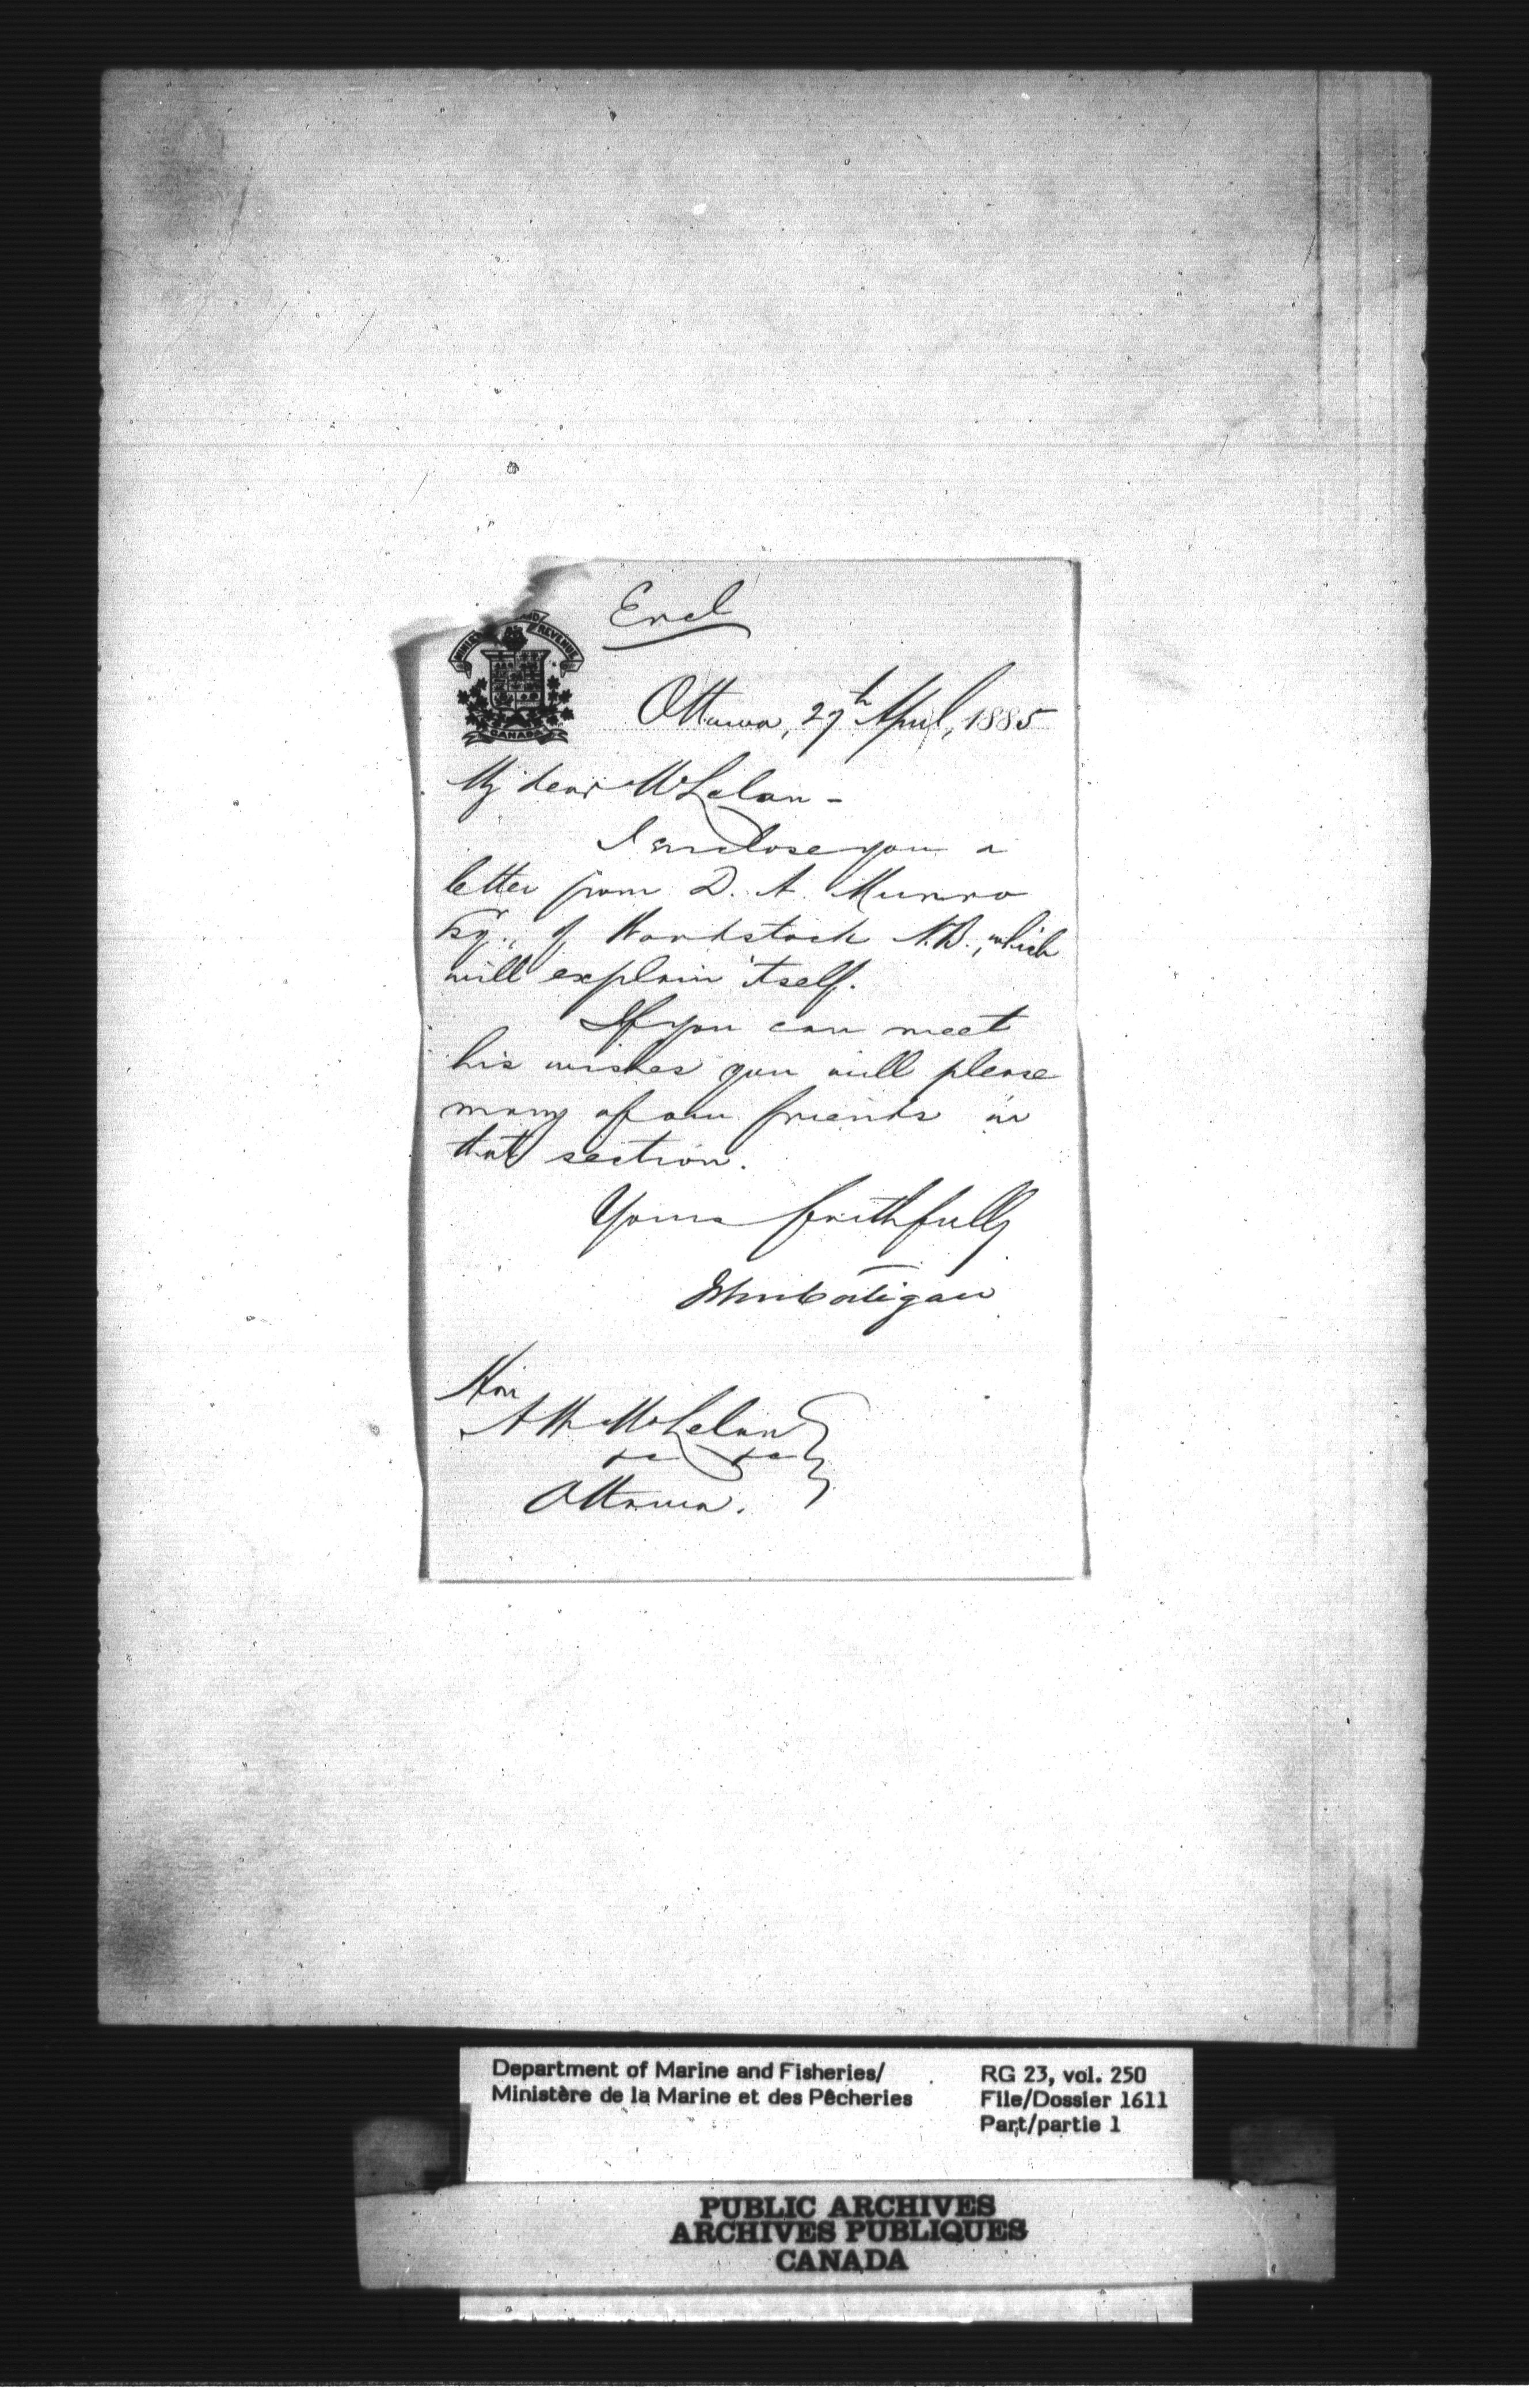 Encl
REVENUE
CANADA
Ottawa, 29th April, 1885
My dear McLelan -
I enclose you a
letter from D. A. Munro
Esqr., of Woodstock N.B., which
will explain itself.
If you can meet
his wishes you will please
many of our friends in
that section.
Yours faithfully
John Costigan
Hon
A W McLelan
Ottawa.
Department of Marine and Fisheries/
Ministère de la Marine et des Pêcheries
RG 23, vol. 250
File/Dossier 1611
Part/partie 1
PUBLIC ARCHIVES
ARCHIVES PUBLIQUES
CANADA